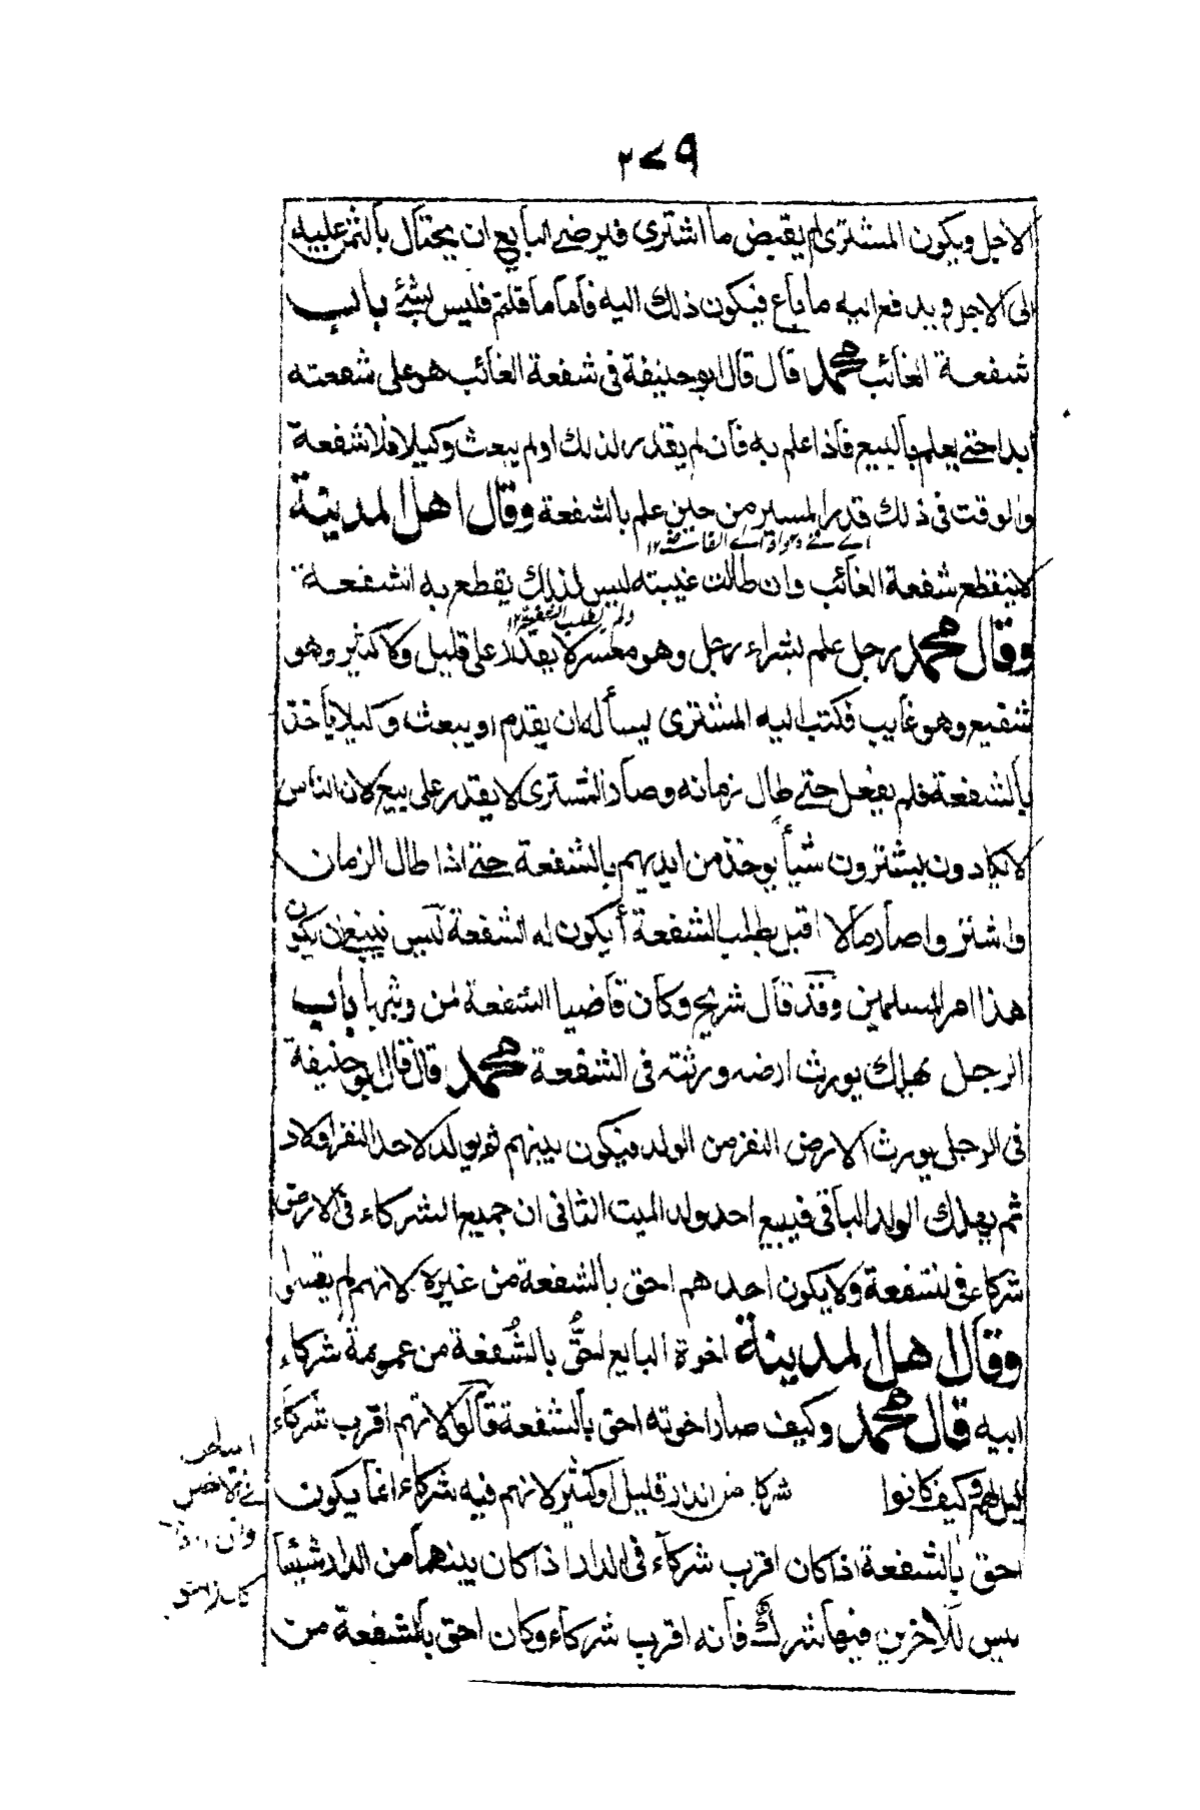 ٢٧٩
الاجل ويكون المشترى لم يقبض ما اشترى فيرضى البايع ان يحتال بالثمن عليه
الى الاجل ويدفع اليه ما باع فيكون ذلك اليه فاما ما قلتم فليس بشئ باب
شفعة الغائب محمد قال قال ابو حنيفة فى شفعة الغائب هو على شفعته
ابدا حتى يعلم بالبيع فاذا علم به فان لم يقدر لذلك او لم يبعث وكيلا فلا شفعة
والوقت فى ذلك قدر المسير من حين علم بالشفعة وقال اهل المدينة
لا ينقطع شفعة الغائب وان طالت غيبته ليس لذلك يقطع به الشفعة
ولم يطلب الشفعة ١٢
وقال محمد رجل علم بشراء رجل وهو معسر لا يقدر على قليل ولا كثير وهو
شفيع وهو غايب فكتب اليه المشترى يسأله ان يقدم او يبعث وكيلا ياخذ
بالشفعة فلم يفعل حتى طال زمانه وصار المشترى لا يقدر على بيع لان الناس
لا يكادون يشترون شيأ يوخذ من ايديهم بالشفعة حتى اذا طال الزمان
واشتر واصار مالا اقبل يطلب الشفعة أيكون له الشفعة ليس ينبغى ان يكون
هذا امر المسلمين وقد قال شريح وكان قاضيا الشفعة لمن وثبها باب
الرجل يهلك يورث ارضه ورثته فى الشفعة محمد قال قال ابو حنيفة
فى الرجل يورث الارض النفر من الولد فيكون بينهم ثم يولد لاحد النفر اولاد
ثم يهلك الولد الباقى فيبيع احد ولد الميت الثانى ان جميع الشركاء فى الارض
شركاء فى الشفعة ولا يكون احدهم احق بالشفعة من غيره لانهم لم يقسموا
وقال اهل المدينة اخوة البايع احقُّ بالشُفعة من عمومة شركاء
ابيه قال محمد وكيف صار اخوته احق بالشفعة قالوا لانهم اقرب شركاء
قيل لهم وكيف كانوا شركا من الدار قليل او كثير لانهم فيه شركاء انما يكون
احق بالشفعة اذا كان اقرب شركاء فى الدار اذا كان بينهما من الدار شيئا
ليس للاخرين فيها شرك فانه اقرب شركاء وكان احق بالشفعة من